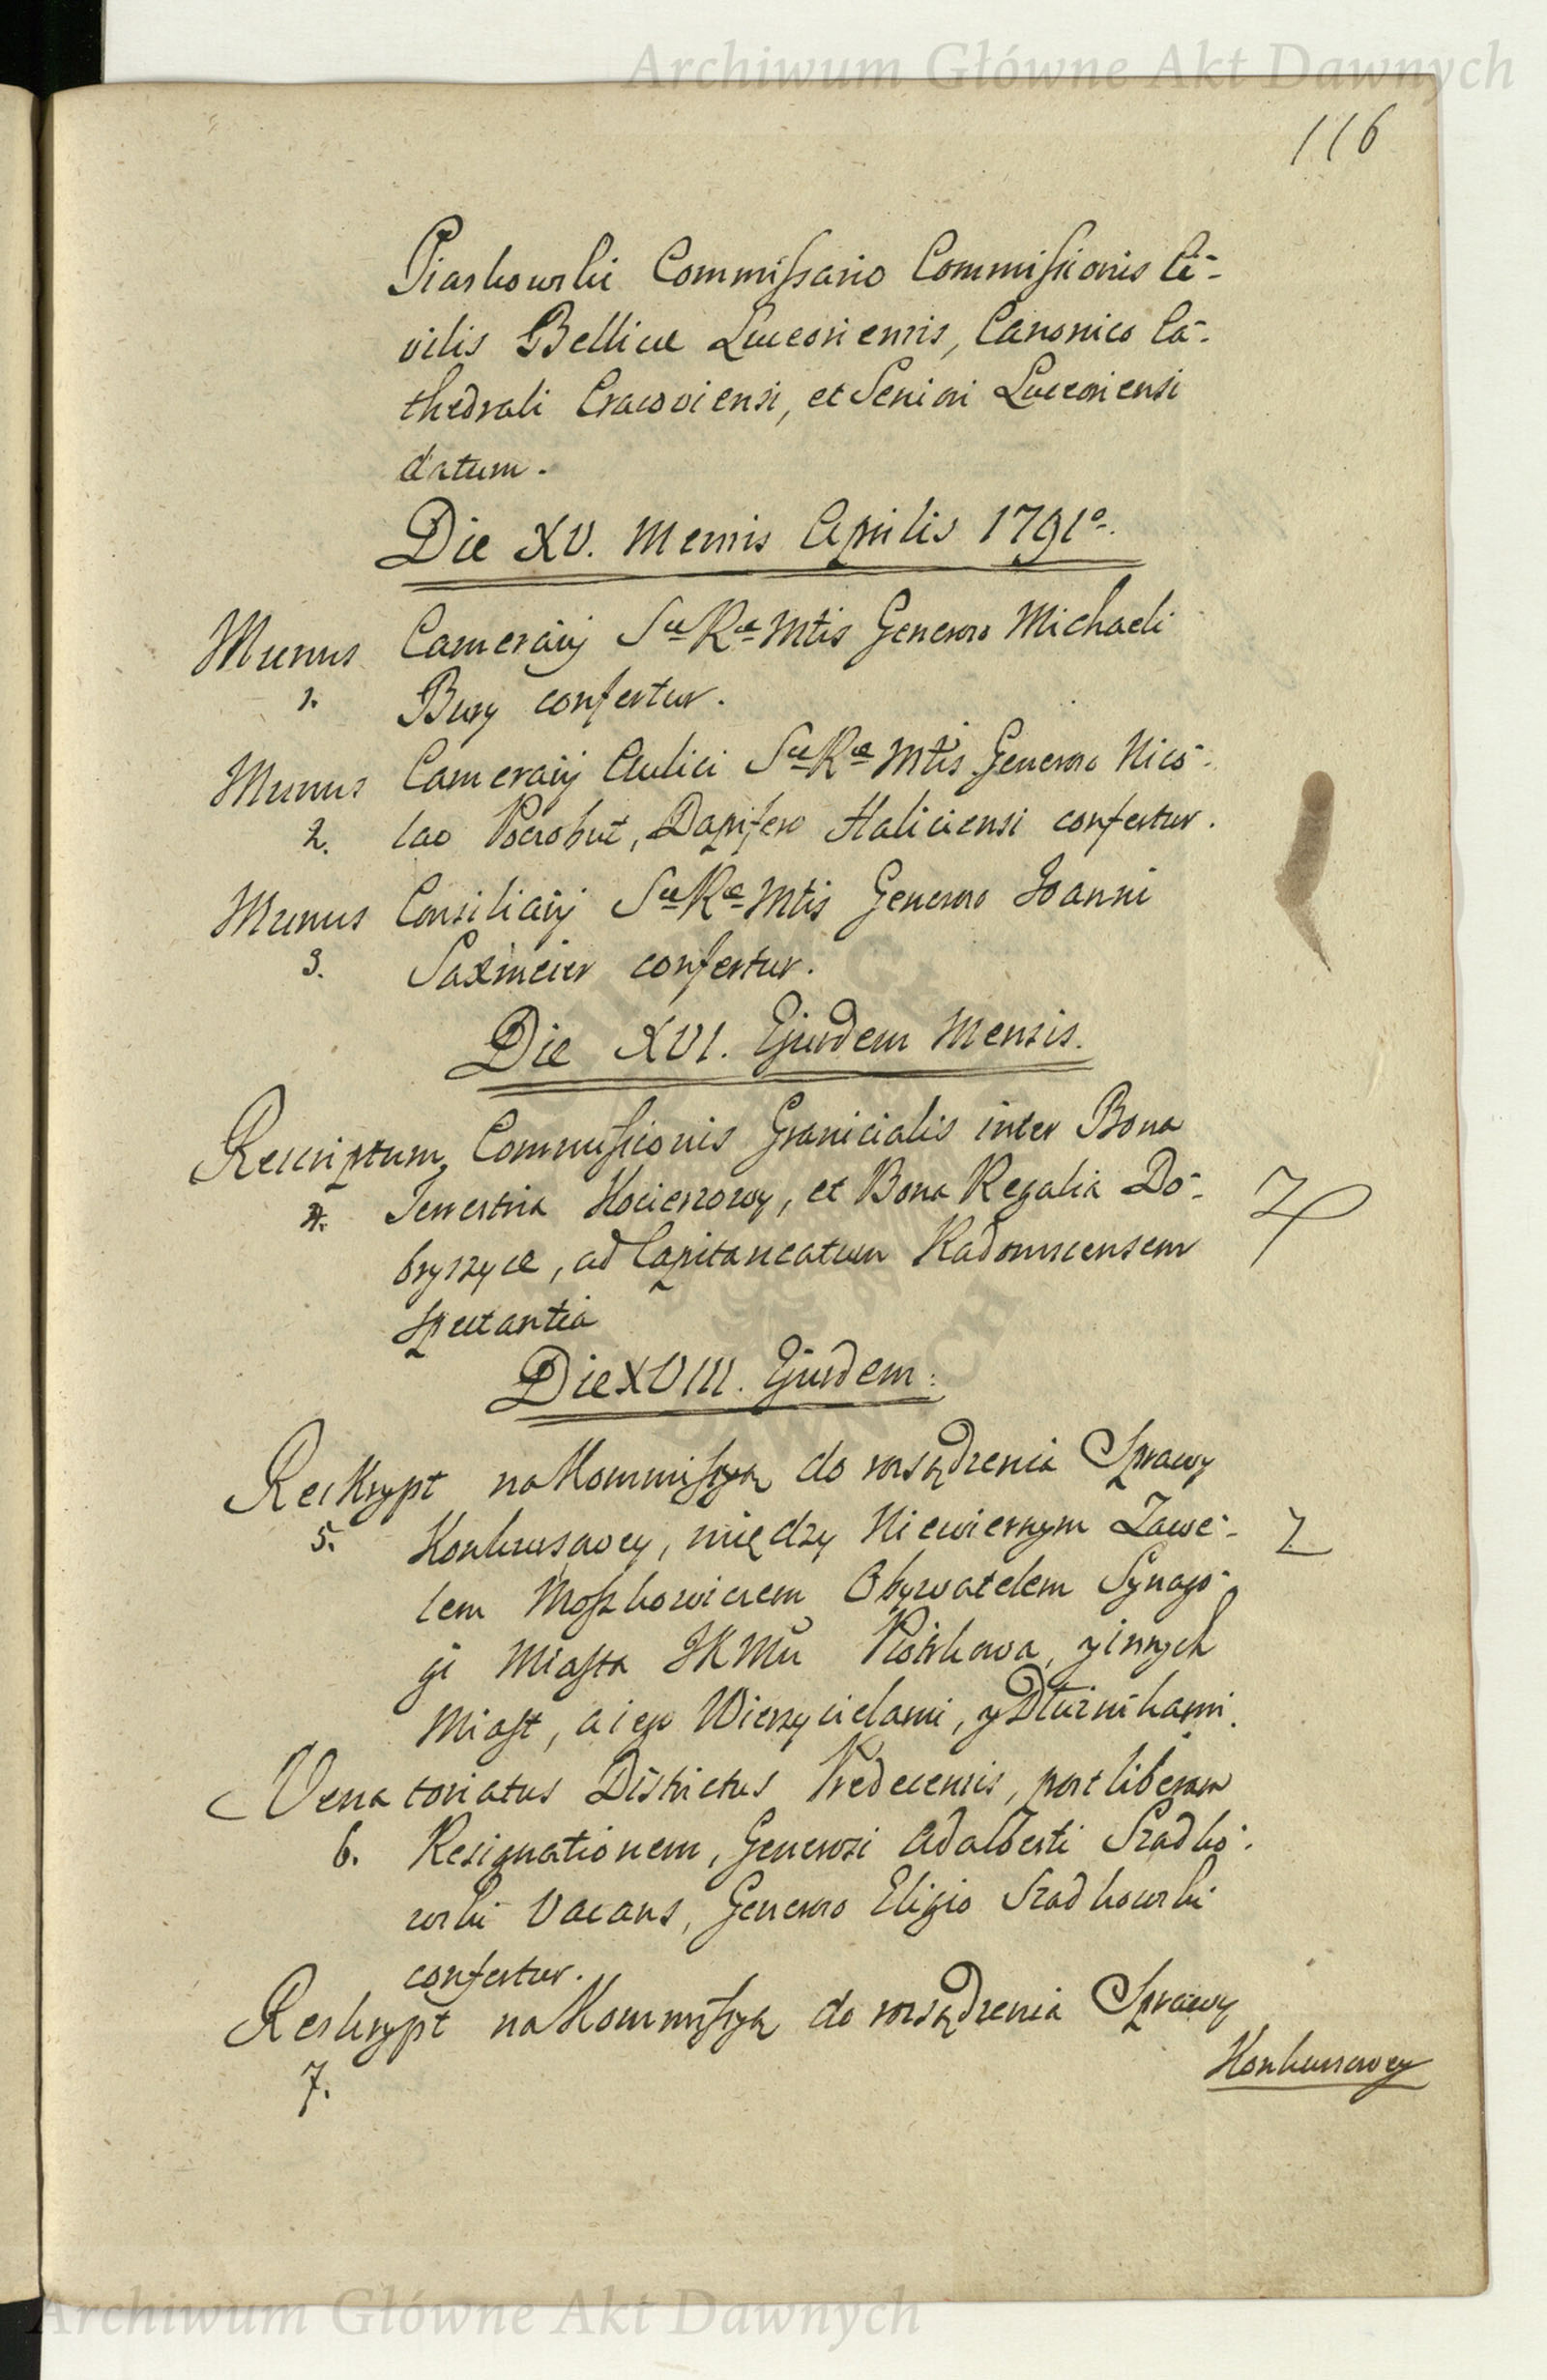 Archiwum Główne Akt Dawnych
116
Piaskowski Commissario Commissionis Ci-
vilis Bellicæ Luceoriensis, Canonico Ca-
thedrali Cracoviensi, et Seniori Luceoriensi
datum.
Die XV. Mensis Aprilis 1791o.
Munus Camerarij Sæ Ræ Mtis Generoso Michaeli
1. Bury confertur.
Munus Camerarij Aulici Sæ Ræ Mtis Generoso Nico-
2. lao Poczobut, Dapifero Haliciensi confertur.
Munus Consiliarij Sæ Ræ Mtis Generoso Joanni
3. Saxmeier confertur.
Die XVI. Ejusdem Mensis.
Rescriptum Commissionis Granicialis inter Bona
4. Terrestria Kocierzowy, et Bona Regalia Do-
bryszyce, ad Capitaneatum Radomscensem
spectantia
Die XVIII. Ejusdem.
Reskrypt na Kommissyą do rozsądzenia Sprawy
5. Konkursowey, między Niewiernym Zawe-
lem Moszkowiczem Obywatelem Synago-
gi Miasta JKMci Piotrkowa, y innych
Miast, a iego Wierzycielami, y Dłużnikami.
Venatoriatus Districtus Predecensis, post liberam
6. Resignationem, Generosi Adalberti Szadko-
wski Vacans, Generoso Eligio Szadkowski
confertur.
Reskrypt na Kommissyą do rozsądzenia Sprawy
7.
Konkursowey
Archiwum Główne Akt Dawnych